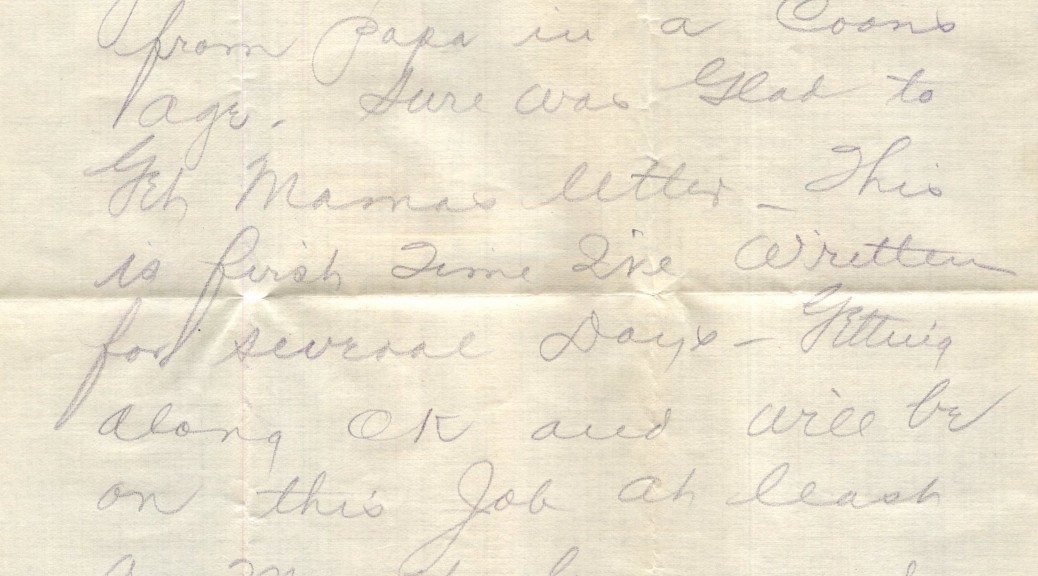 from papa in a Coons
age. Sure was Glad to
Get Mamas letter - This
is first Time I've Written
for several Days - Getting
along OK and will be
on this Job at least